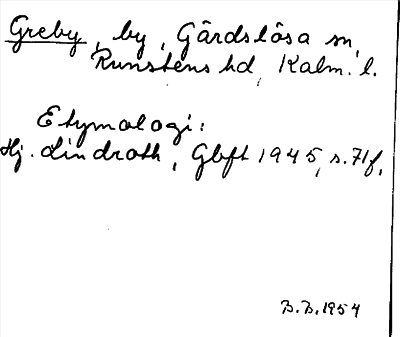 Greby, by, Gärdslösa sn,
Runstens hd, Kalm. l.
Etymologi:
Hj. Lindroth, Gbft 1945, s. 71f.
B.B. 1954